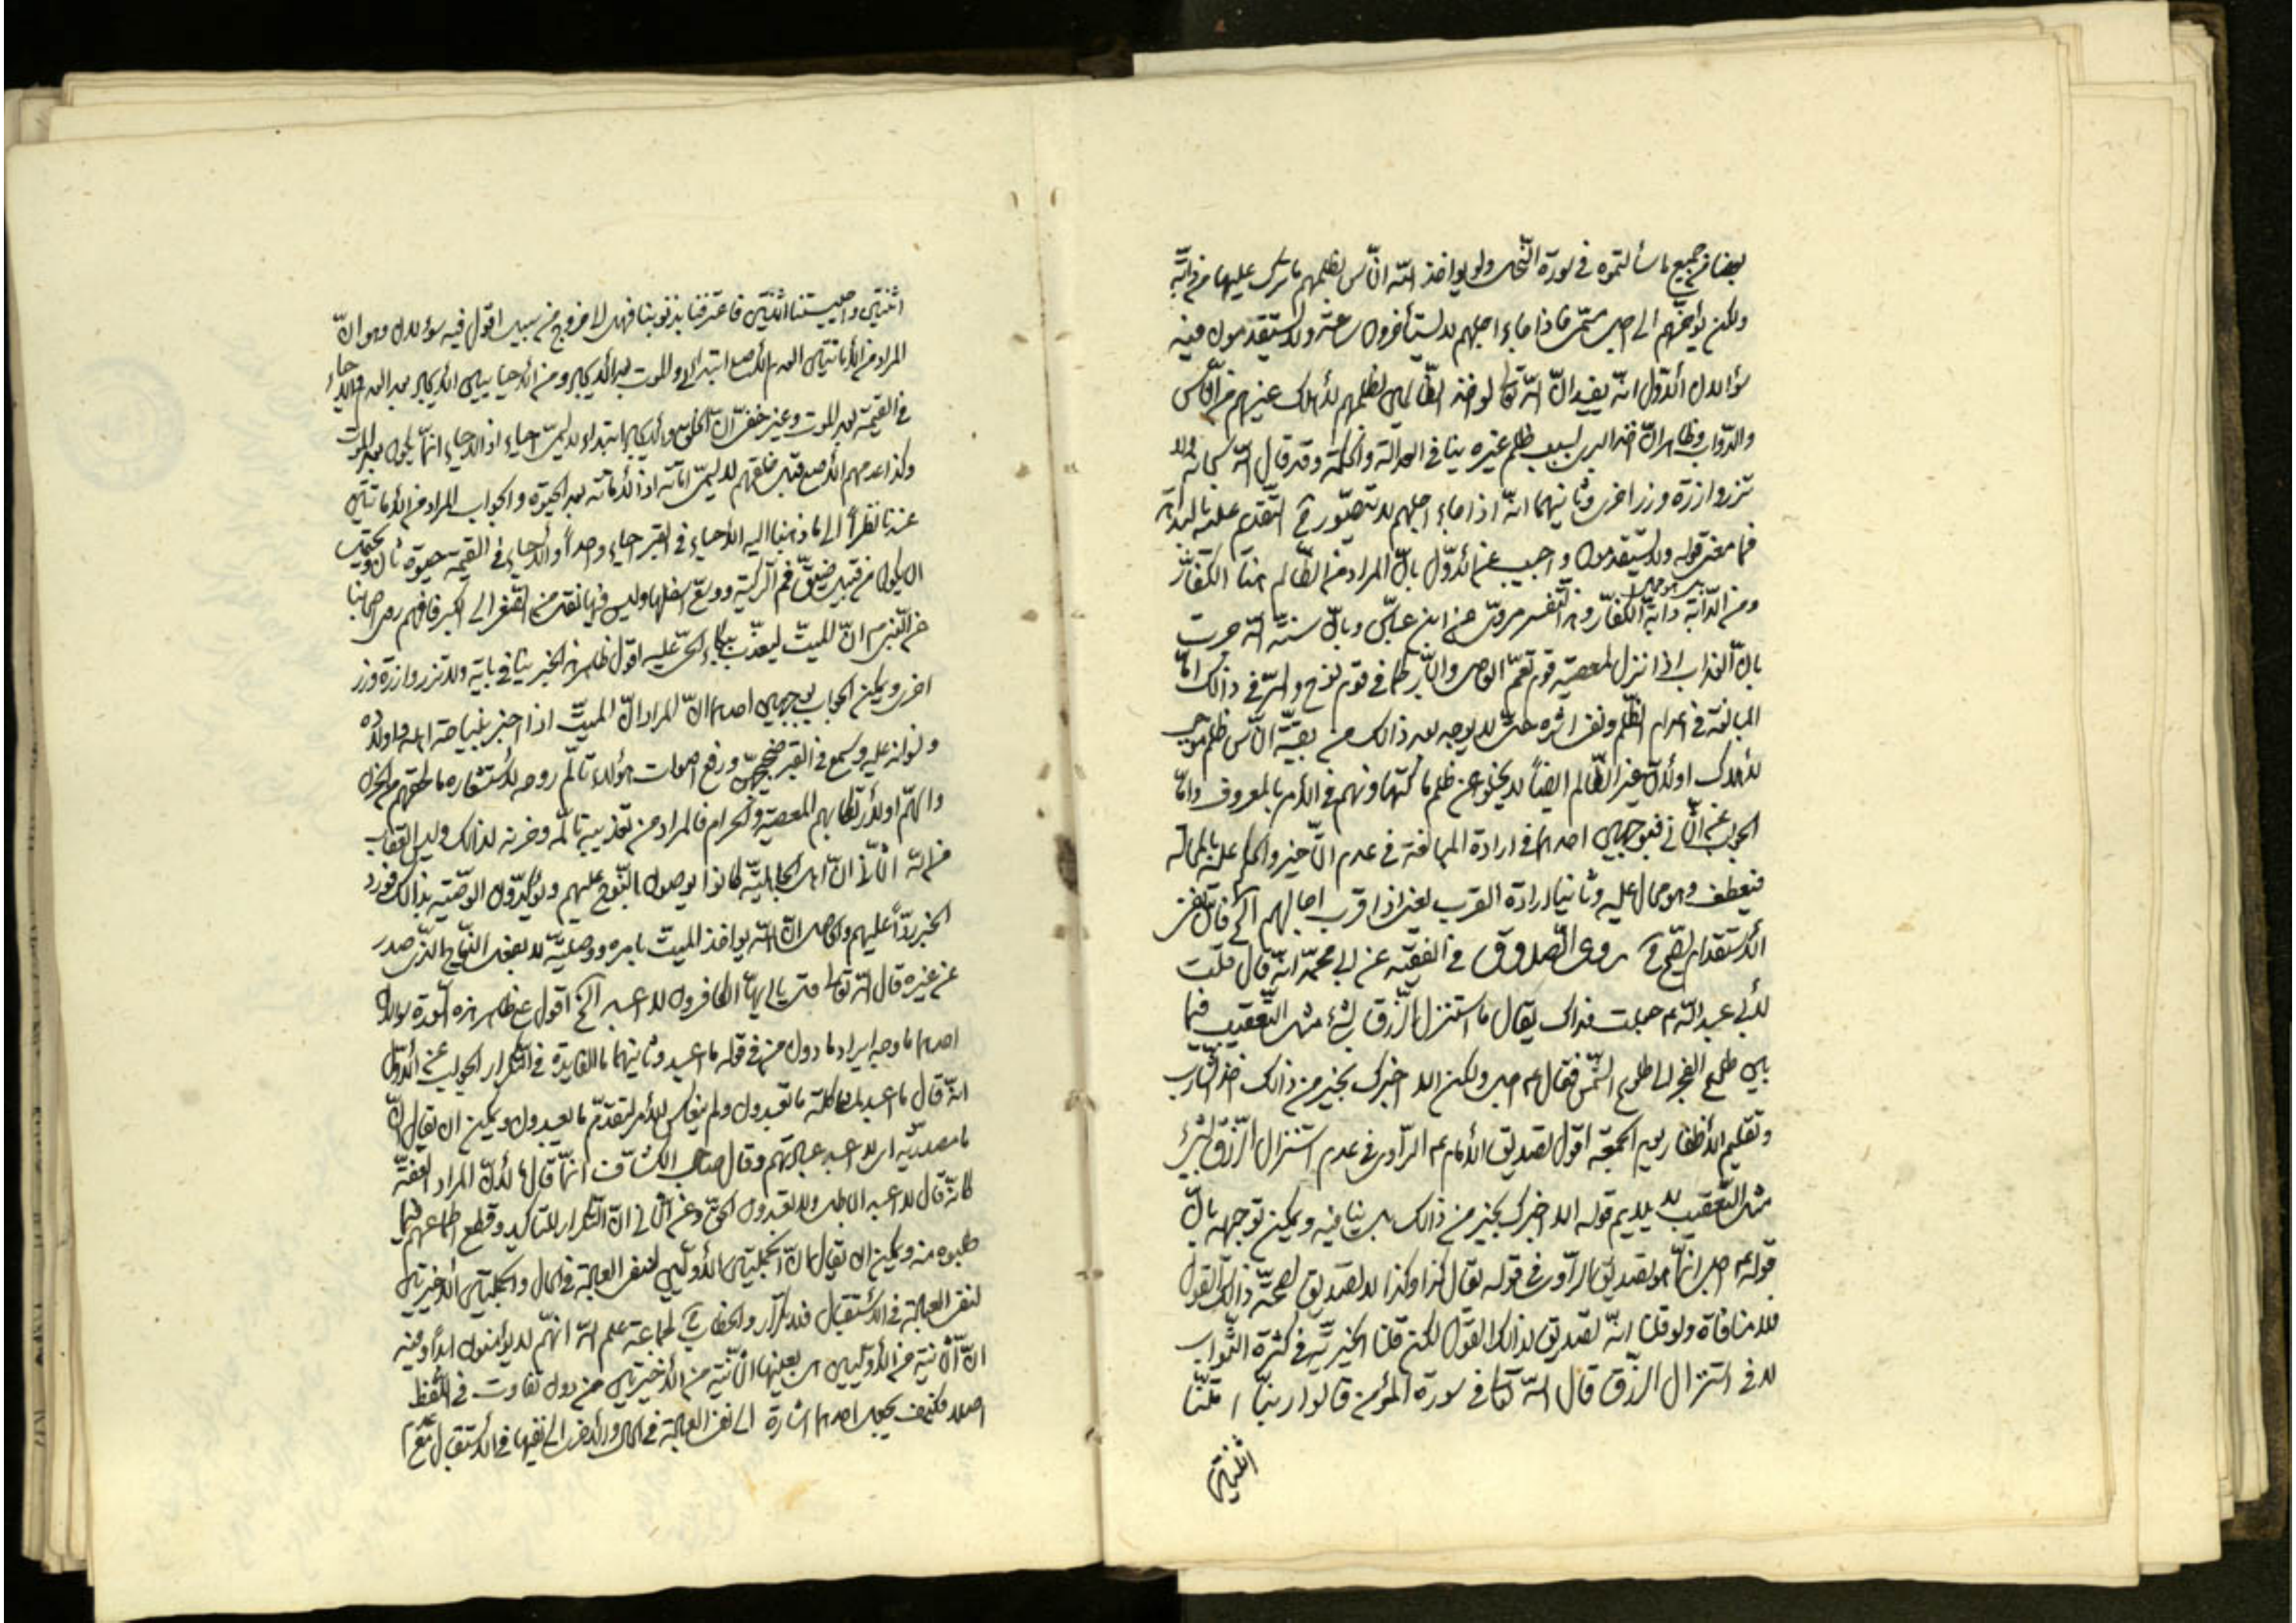 بعضا من جميع ما سألتموه في سورة النّحل ولو يواخذ اللّه النّاس بظلمهم ما ترك عليها من دابّة
ولكن يؤخّرهم الى اجل مسمّى فاذا جاء اجلهم لا يستأخرون ساعة ولا يستقدمون فيه
سؤالان الأوّل انّه يفيد انّ اللّه تعالى لو اخذ الظّالمين بظلمهم لأهلك غيرهم من النّاس
والدّواب وظاهر انّ اخذ البرئ بسبب ظلم غيره ينافي العدالة والحكمة وقد قال اللّه سبحانه ولا
تزر وازرة وزر اخرى وثانيهما انّه اذا جاء اجلهم لا يتصوّر ح التّقدم عليه بالبداهة
فما معنى قوله ولا يستقدمون واجيب عن الأوّل بانّ المراد من الظّالم هنا الكفّار
ومن الدّابة دابّة الكفّار وهذا التّفسير مروىّ عن ابن عبّاس وبانّ سنّة اللّه جرت
بانّ العذاب اذا نزل لمعصية قوم تعمّ العاصى والبّر كما في قوم نوح والسّر في ذالك امّا
المبالغة في اعدام الظّلم ونفى اثره حتّى لا يوجد بعد ذالك من بقيّة النّاس ظلم موجب
للأهلاك اولأنّ غير الظّالم ايضاً لا يخلو عن ظلم ما كتهاونهم في الأمر بالمعروف وامّا
الجواب عن الثّاني فبوجهين احدهما في ارادة المبالغة في عدم التّأخير والحكم عليه بالمحالة
فيعطف وهو محال عليه وثانيها ارادة القرب يعنى اذا قرب اجالهم الخ فانّ نفى
الأستقدام يصحّ ح روى الصّدوق في الفقيه عن ابى محمّد انّه قال قلت
لأبى عبد اللّه ع جعلت فداك يقال ما استنزل الرّزق بشئ مثل التّعقيب فيما
بين طلوع الفجر الى طلوع الشّمس فقال ع اجل ولكن الا اخبرك بخير من ذالك اخذ الشّارب
وتقليم الأظفار يوم الجمعة اقول تصديق الأمام ع الرّاوى في عدم استنزال الرّزق بشئ
مثل التّعقيب لا يلايم قوله الا اخبرك بخير من ذالك بل ينافيه ويمكن توجيهه بانّ
قوله ع اجل انّما هو تصديق الرّاوى في قوله يقال كذا وكذا لا تصديق لصحّة ذالك القول
فلا منافاة ولو قلنا انّه تصديق لذالك القول لكن قلنا الخيريّة في كثرة الثّواب
لا في استنزال الرّزق قال اللّه تعالى في سورة المؤمن قالوا ربّنا امتّنا
اثنتين
اثنتين واحييتنا اثنتين فاعترفنا بذنوبنا فهل الى خروج من سبيل اقول فيه سؤال وهو انّ
المراد من الأماتتين العدم الأصلى ابتدائى والموت بعد الأيجاد ومن الأحيائين الأيجاد بعد العدم والأحياء
في القيمة بعد الموت وغير خفىّ انّ الخلق والأيجاد ابتداء لا يسمّى احياء اذ الأحياء انّما يكون بعد الموت
وكذا عدمهم الأصلى قبل خلقهم لا يسمّى اماتة اذ الأماتة بعد الحيوة والجواب المراد من الأماتتين
عندنا نظراً الى ما ذهبنا اليه الأحياء في القبر احياء واحداً والأحياء في القيمة حيوة ثان ويحتمل
ان يكون من قبيل ضيّق فم الرّكيّة ووسّع اسفلها وليس فيها نقل من الصّغر الى الكبر فافهم روى اصحابنا
عن النّبى ص انّ الميّت ليعذّب ببكاء الحىّ عليه اقول ظاهر هذا الخبر ينافي باية ولا تزر وازرة وزر
اخرى ويمكن الجواب بوجهين احدهما انّ المراد انّ الميّت اذا اخبر بنياحة اهله واولاده
ونوله عليه وسمع في القبر ضجيجهنّ ورفع اصوات هؤلاء تألّم روحه لأستشعاره ما لحقهم من الحزن
والهمّ اولأرتكابهم المعصية والحرام فالمراد من تعذيبه تألّمه وحزنه لذالك وليس العقاب
من اللّه الثّانى انّ اهل الجاهليّة كانوا يوصون بالنّوح عليهم ويؤكّدون الوصيّة بذالك فورد
الخبر ردّاً عليهم والحاصل انّ اللّه يواخذ الميّت بامره ووصيّته لا بفعل النّياح الّذى صدر
عن غيره قال اللّه تعالى قل يا ايّها الكافرون لا اعبد الخ اقول على ظاهر هذه السّورة سؤالان
احدهما ما وجه ايراد ما دون من في قوله ما اعبد وثانيهما ما الفايدة في التّكرار الجواب عن الأوّل
انّه قال ما اعبد لمشاكلة ما تعبدون ولم ينعكس للأمر لتقدّم ما تعبدون ويمكن ان يقال انّ
ما مصدريّة اى لا اعبد عبادتهم وقال صاحب الكشّاف انّما قال ما لأنّ المراد الصّفة
كانّه قال لا اعبد الباطل ولا تعبدون الحقّ وعن الثّانى انّ التّكرار للتأكيد وقطع اطماعهم فيما
طلبوه منه ويمكن ان يقال انّ الجملتين الأوّلتين لنفى العبادة في الحال والجملتين الأخيرتين
لنفى العبادة في الأستقبال فلا تكرار والخطاب ح لجماعة علم اللّه انّهم لا يؤمنون ابداً وفيه
انّ الثّانية من الأوّليين هى بعينها الثّانية من الأخيرتين من دون تفاوت في اللّفظ
اصلا فكيف يجعل احدهما اشارة الى نفى العبادة في الحال والأخرى الى نفيها في الأستقبال مع عدم